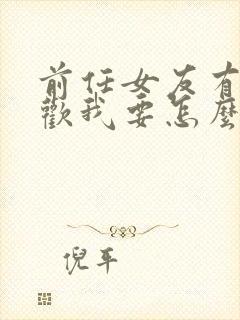 前任女友有
歡我要怎麼
倪平